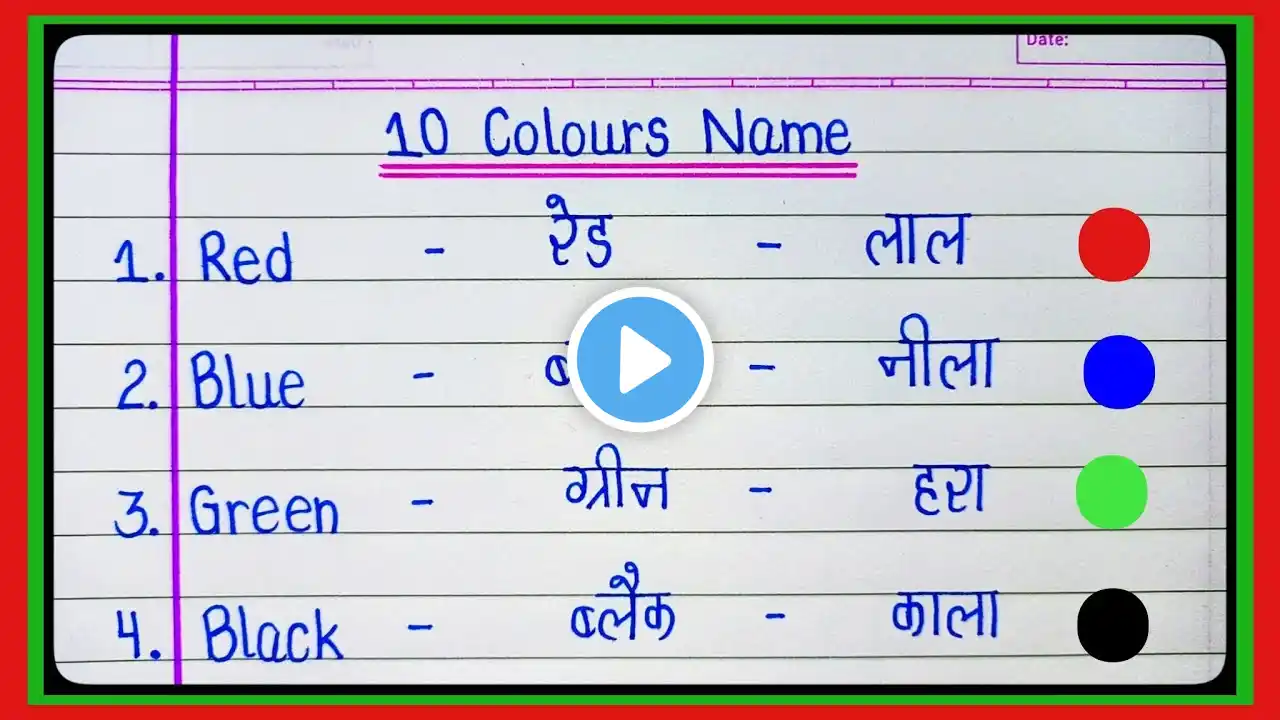 Date:
10 Colours Name
1. Red - रेड - लाल
2. Blue - - नीला
3. Green - ग्रीन - हरा
4. Black - ब्लैक - काला